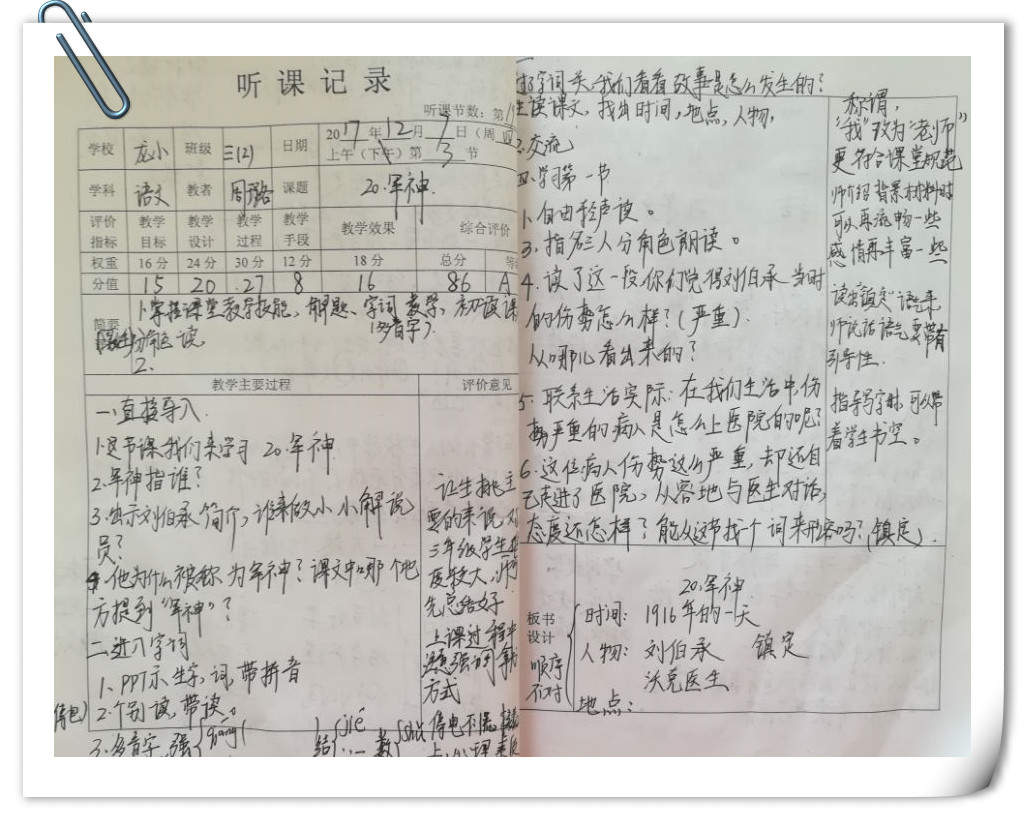 听课记录
听课节数：第
学校 龙小 班级 三(2) 日期 2017年12月7日（周四
上午（下午）第3节
学科 语文 教者 周璐 课题 20.军神
评价指标 教学目标 教学设计 教学过程 教学手段 教学效果 综合评价
权重 16分 24分 30分 12分 18分 总分
分值 15 20 27 8 16 86 A
简要
1.掌握课堂教学技能，解题、字词教学，初读课
（多音字）.
分角色读.
2.
教学主要过程
一、直接导入.
1.这节课我们来学习 20.军神
2.军神指谁？
3.出示刘伯承简介，谁来做小小解说
员？
4.他为什么被称为军神？课文中哪个地
方提到“军神”？
二、进入字词
1、PPT示生字，词，带拼音
2.个别读，带读。
3.多音字，强 qiáng
结 jié
数 shǔ
评价意见
让生挑主
要的来说，对
三年级学生
度较大，师
先总结好
上课过程中
方式
停电不慌
字词关，我们看看故事是怎么发生的？
生读课文，找出时间，地点，人物，
2.交流
四、学习第一节
1.自由轻声读。
3.指名三人分角色朗读。
4.读了这一段，你们觉得刘伯承当时
的伤势怎么样？（严重）.
从哪儿看出来的？
5.联系生活实际：在我们生活中伤
势严重的病人是怎么上医院的呢？
6.这位病人伤势这么严重，却还自
己走进了医院，从容地与医生对话，
态度还怎样？能从这节找个词来形容吗？（镇定）.
称谓，
“我”改为“老师”
更符合课堂规范
师介绍背景材料时
可以再流畅一些
感情再丰富一些
读出“镇定”语气来
师说话语气要带有
引导性.
指导写字时，可以带
着学生书空。
板书设计
顺序不对
20.军神
时间：1916年的一天
人物：刘伯承 镇定
沃克医生
地点：